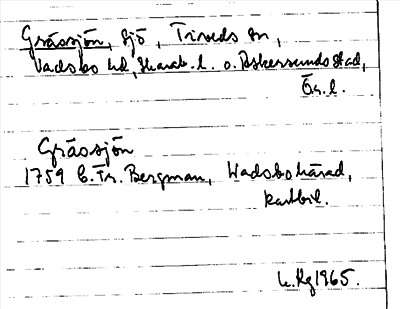 Gråssjön, sjö, Tiveds sn,
Vadsbo hd, Skarab. l. o. Askersunds stad,
Ör. l.
Gråssjön
1759 C. Fr. Bergman, Wadsbo härad,
kartbil.
1965.